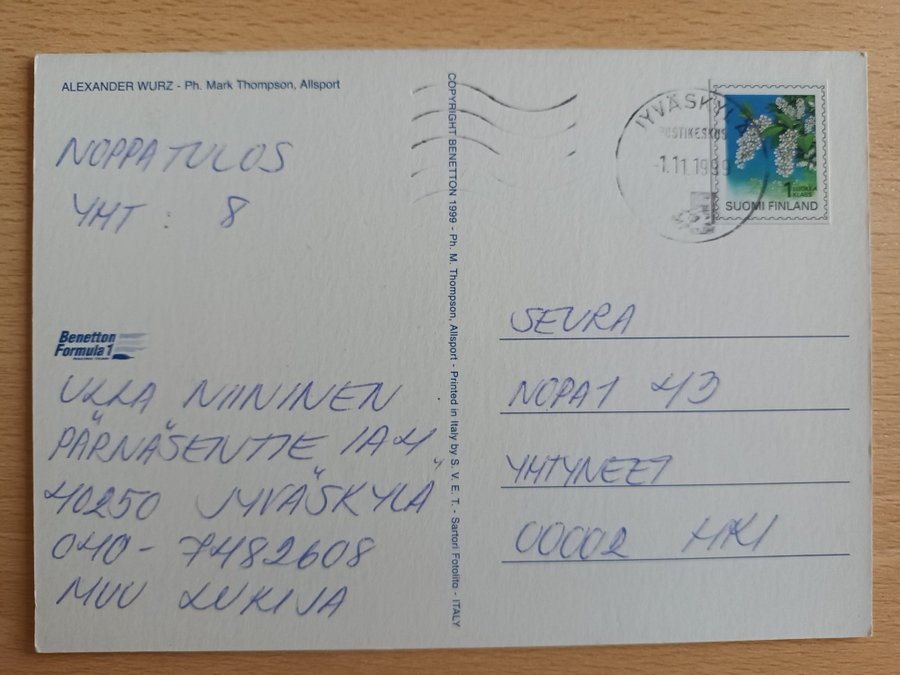 ALEXANDER WURZ - Ph. Mark Thompson, Allsport
NOPPATULOS
YHT : 8
Benetton
Formula 1
ULLA NIININEN
PÄRNÄSENTIE 1A4
40250 JYVÄSKYLÄ
040-7482608
MUU LUKIJA
COPYRIGHT BENETTON 1999 - Ph. M. Thompson, Allsport - Printed in Italy by S. V. E. T. - Sartori Fotolito - ITALY
JYVÄSKYLÄ
POSTIKESKUS
-1.11.1999
1 LUOKKA
KLASS
SUOMI FINLAND
SEURA
NOPAT 43
YHTYNEET
00002 HKI